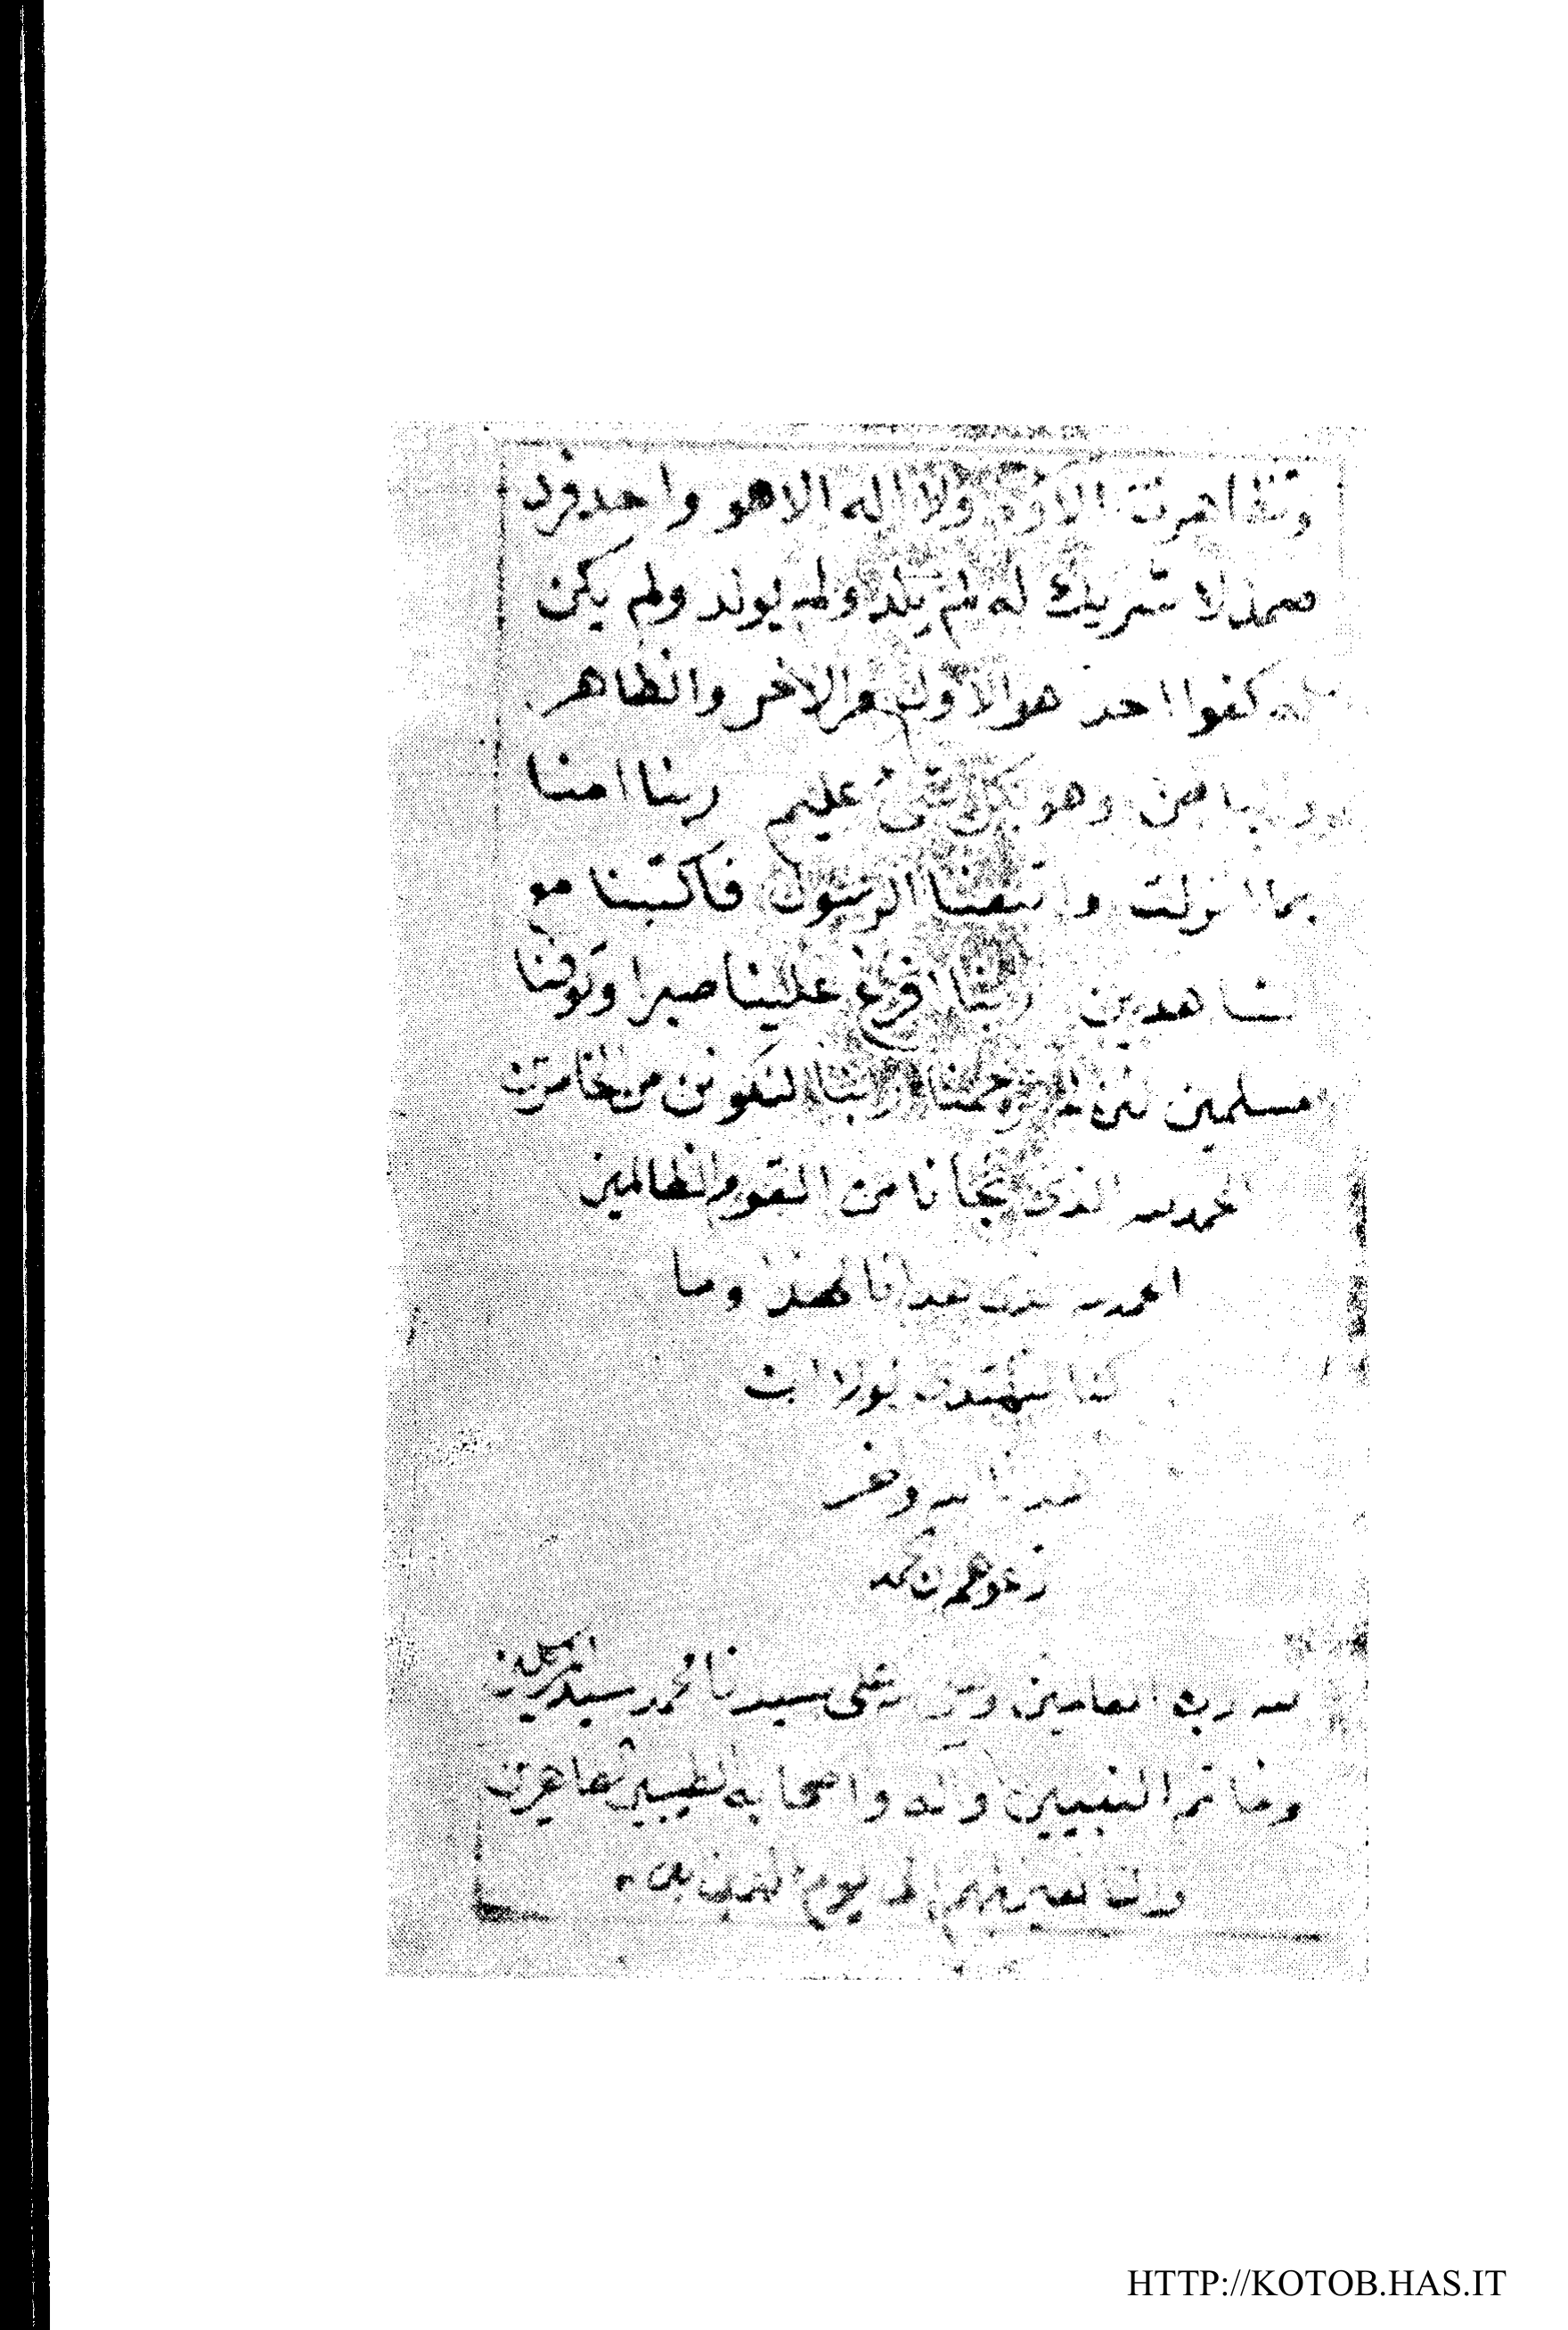 وتظاهرت الاؤه ولا اله الا هو واحد فرد
صمد لا شريك له لم يلد ولم يولد ولم يكن
له كفوا احد هو الاول والاخر والظاهر
والباطن وهو بكل شئ عليم ربنا امنا
بما انزلت واتبعنا الرسول فاكتبنا مع
الشاهدين ربنا افرغ علينا صبرا وتوفنا
مسلمين لئن لم ترحمنا ربنا لنكونن من الخاسرين
الحمد لله الذى نجانا من القوم الظالمين
الحمد لله الذى هدانا لهذا وما
كنا لنهتدى لولا ان
هدانا الله واخر
دعوهم ان الحمد
لله رب العالمين وصلى الله على سيدنا محمد سيد المرسلين
وخاتم النبيين واله واصحابه الطيبين الطاهرين
والتابعين لهم الى يوم الدين
HTTP://KOTOB.HAS.IT